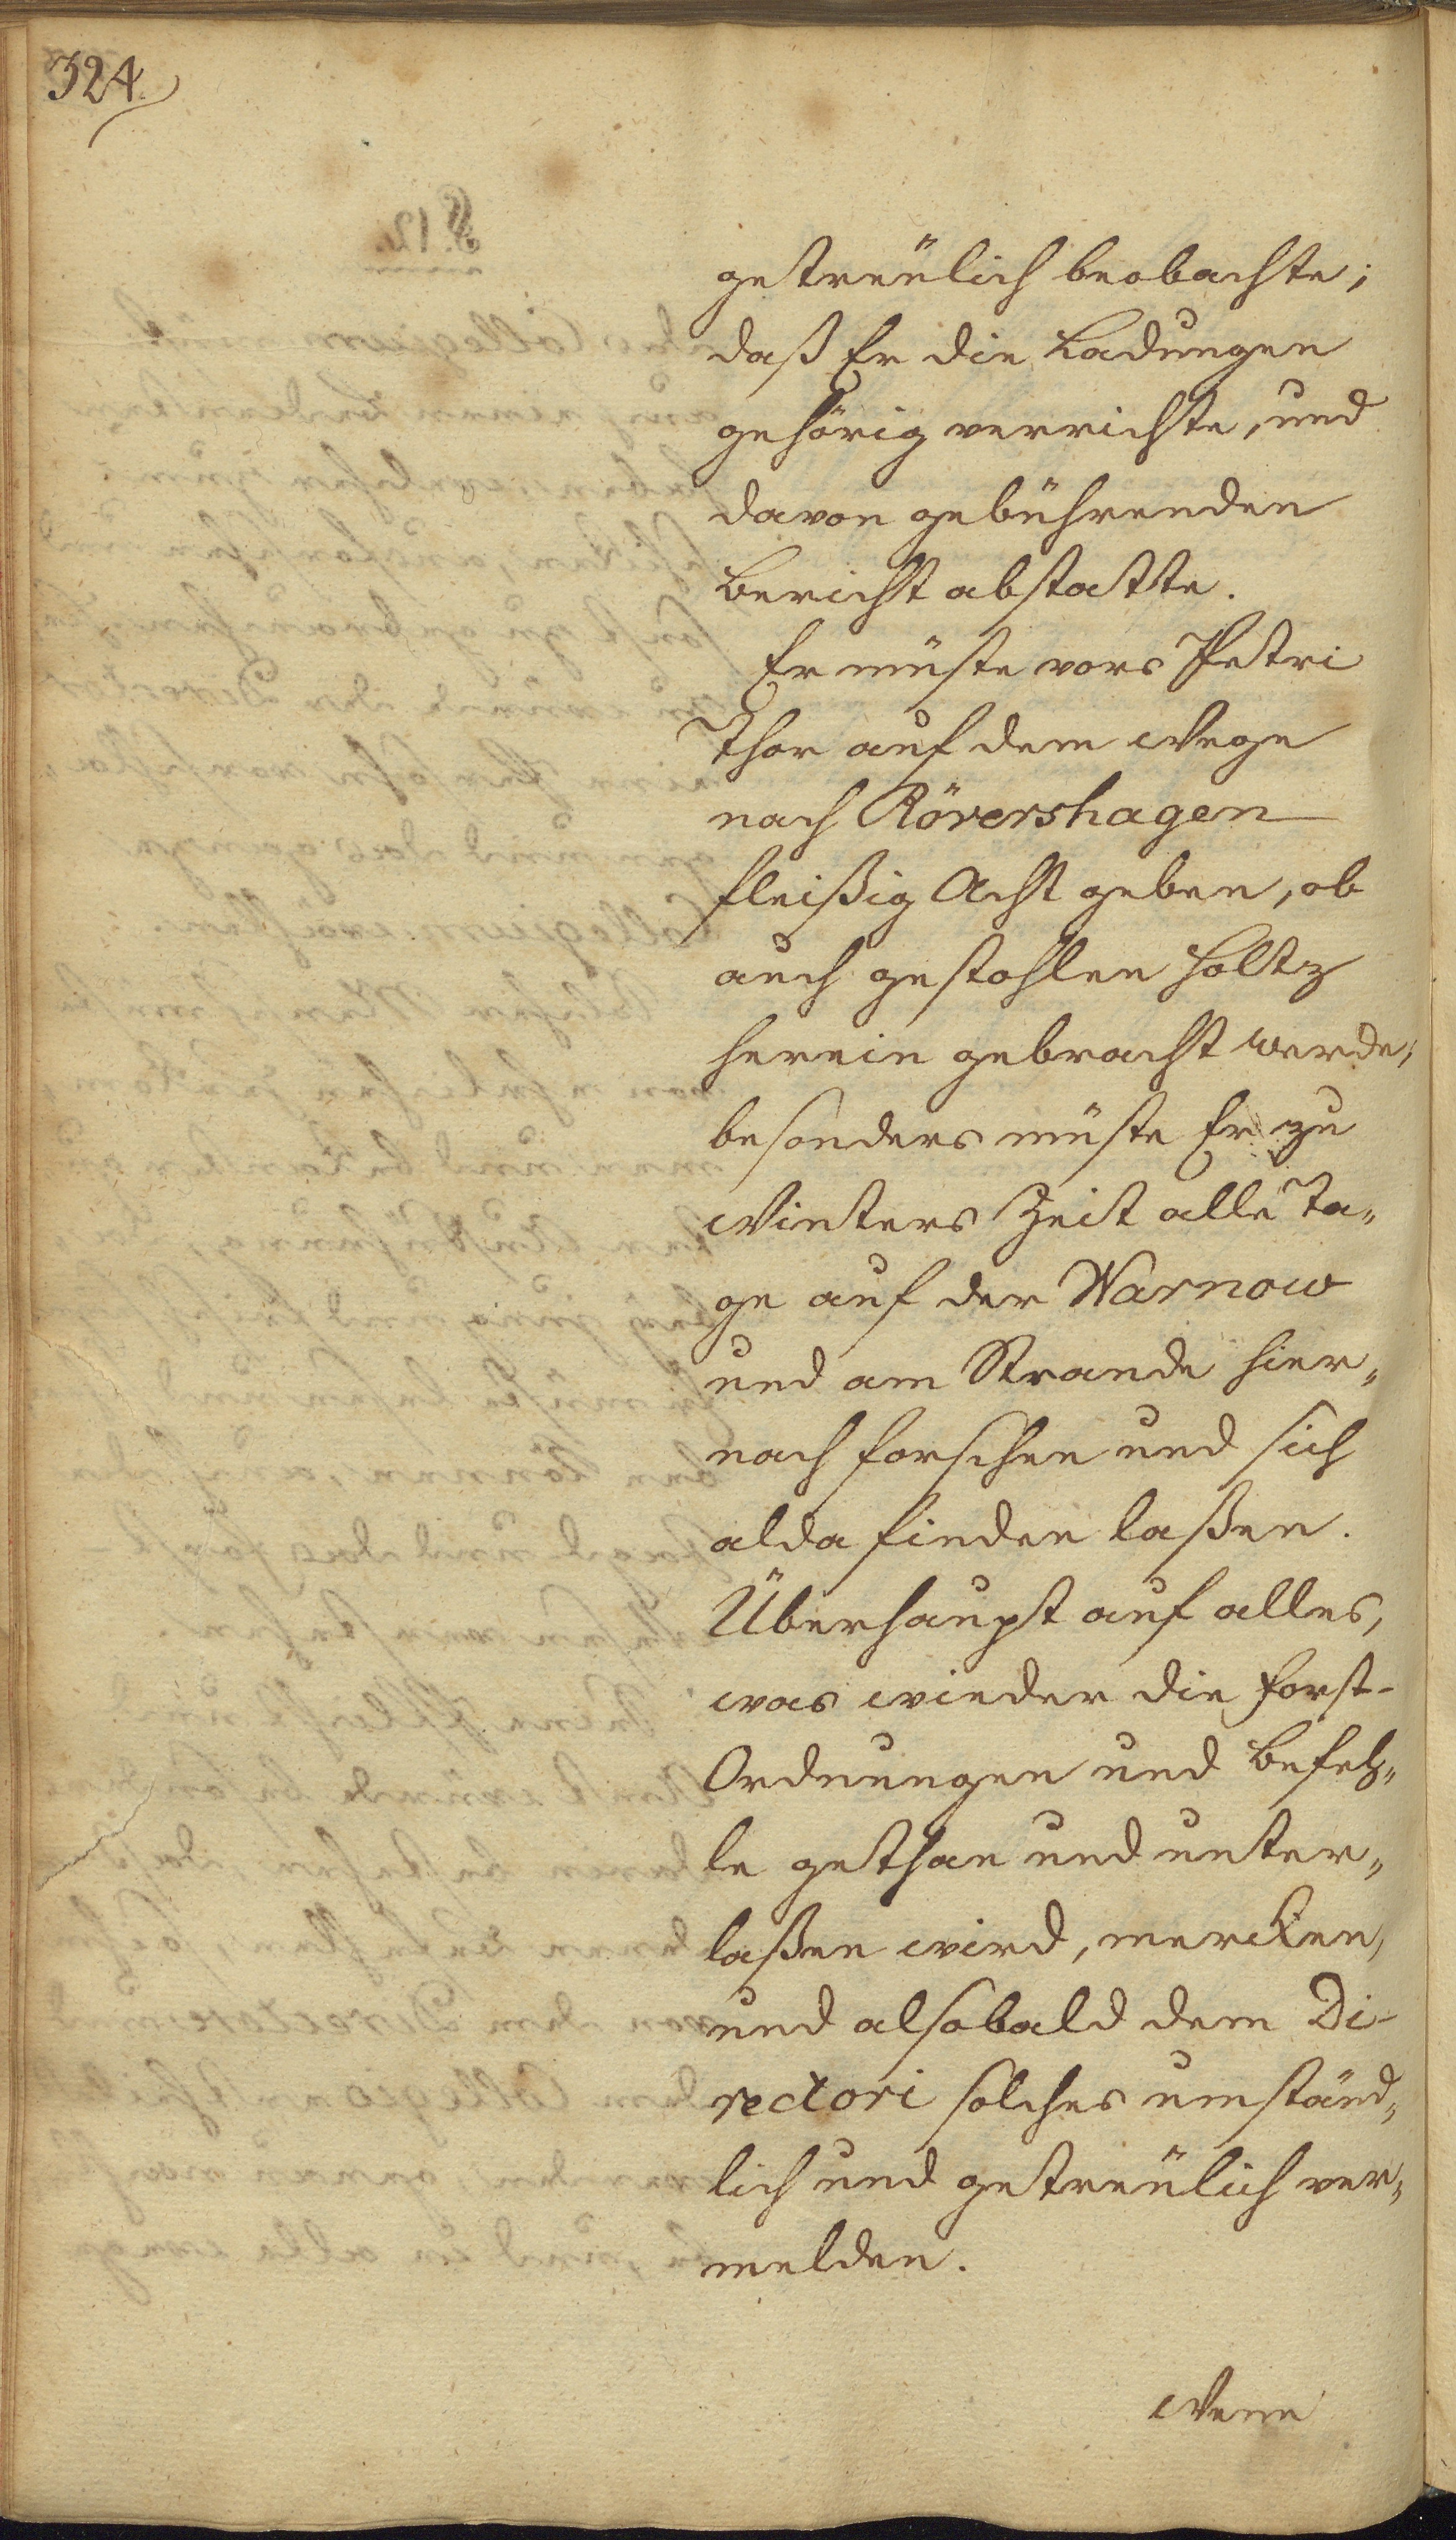 324.
getreülich beobachte;
daß Er die Ladungen
gehörig verrichte, und
davon gebührenden
Bericht abstatte.
Er müste vors Petri
Thor auf dem Wege
nach Rövershagen
fleißig Acht geben, ob
auch gestohlen Holtz
herein gebracht werde;
besonders müste Er zu
Winters Zeit alle Ta„
ge auf der Warnow
und am Strande hier„
nach forschen und sich
alda finden laßen.
Überhaupt auf alles,
was wieder die Forst-
Ordnungen und Befeh„
le gethan und unter„
laßen wird, mercken,
und alsobald dem Di-
rectori solches umständ„
lich und getreülich ver„
melden.
Wenn